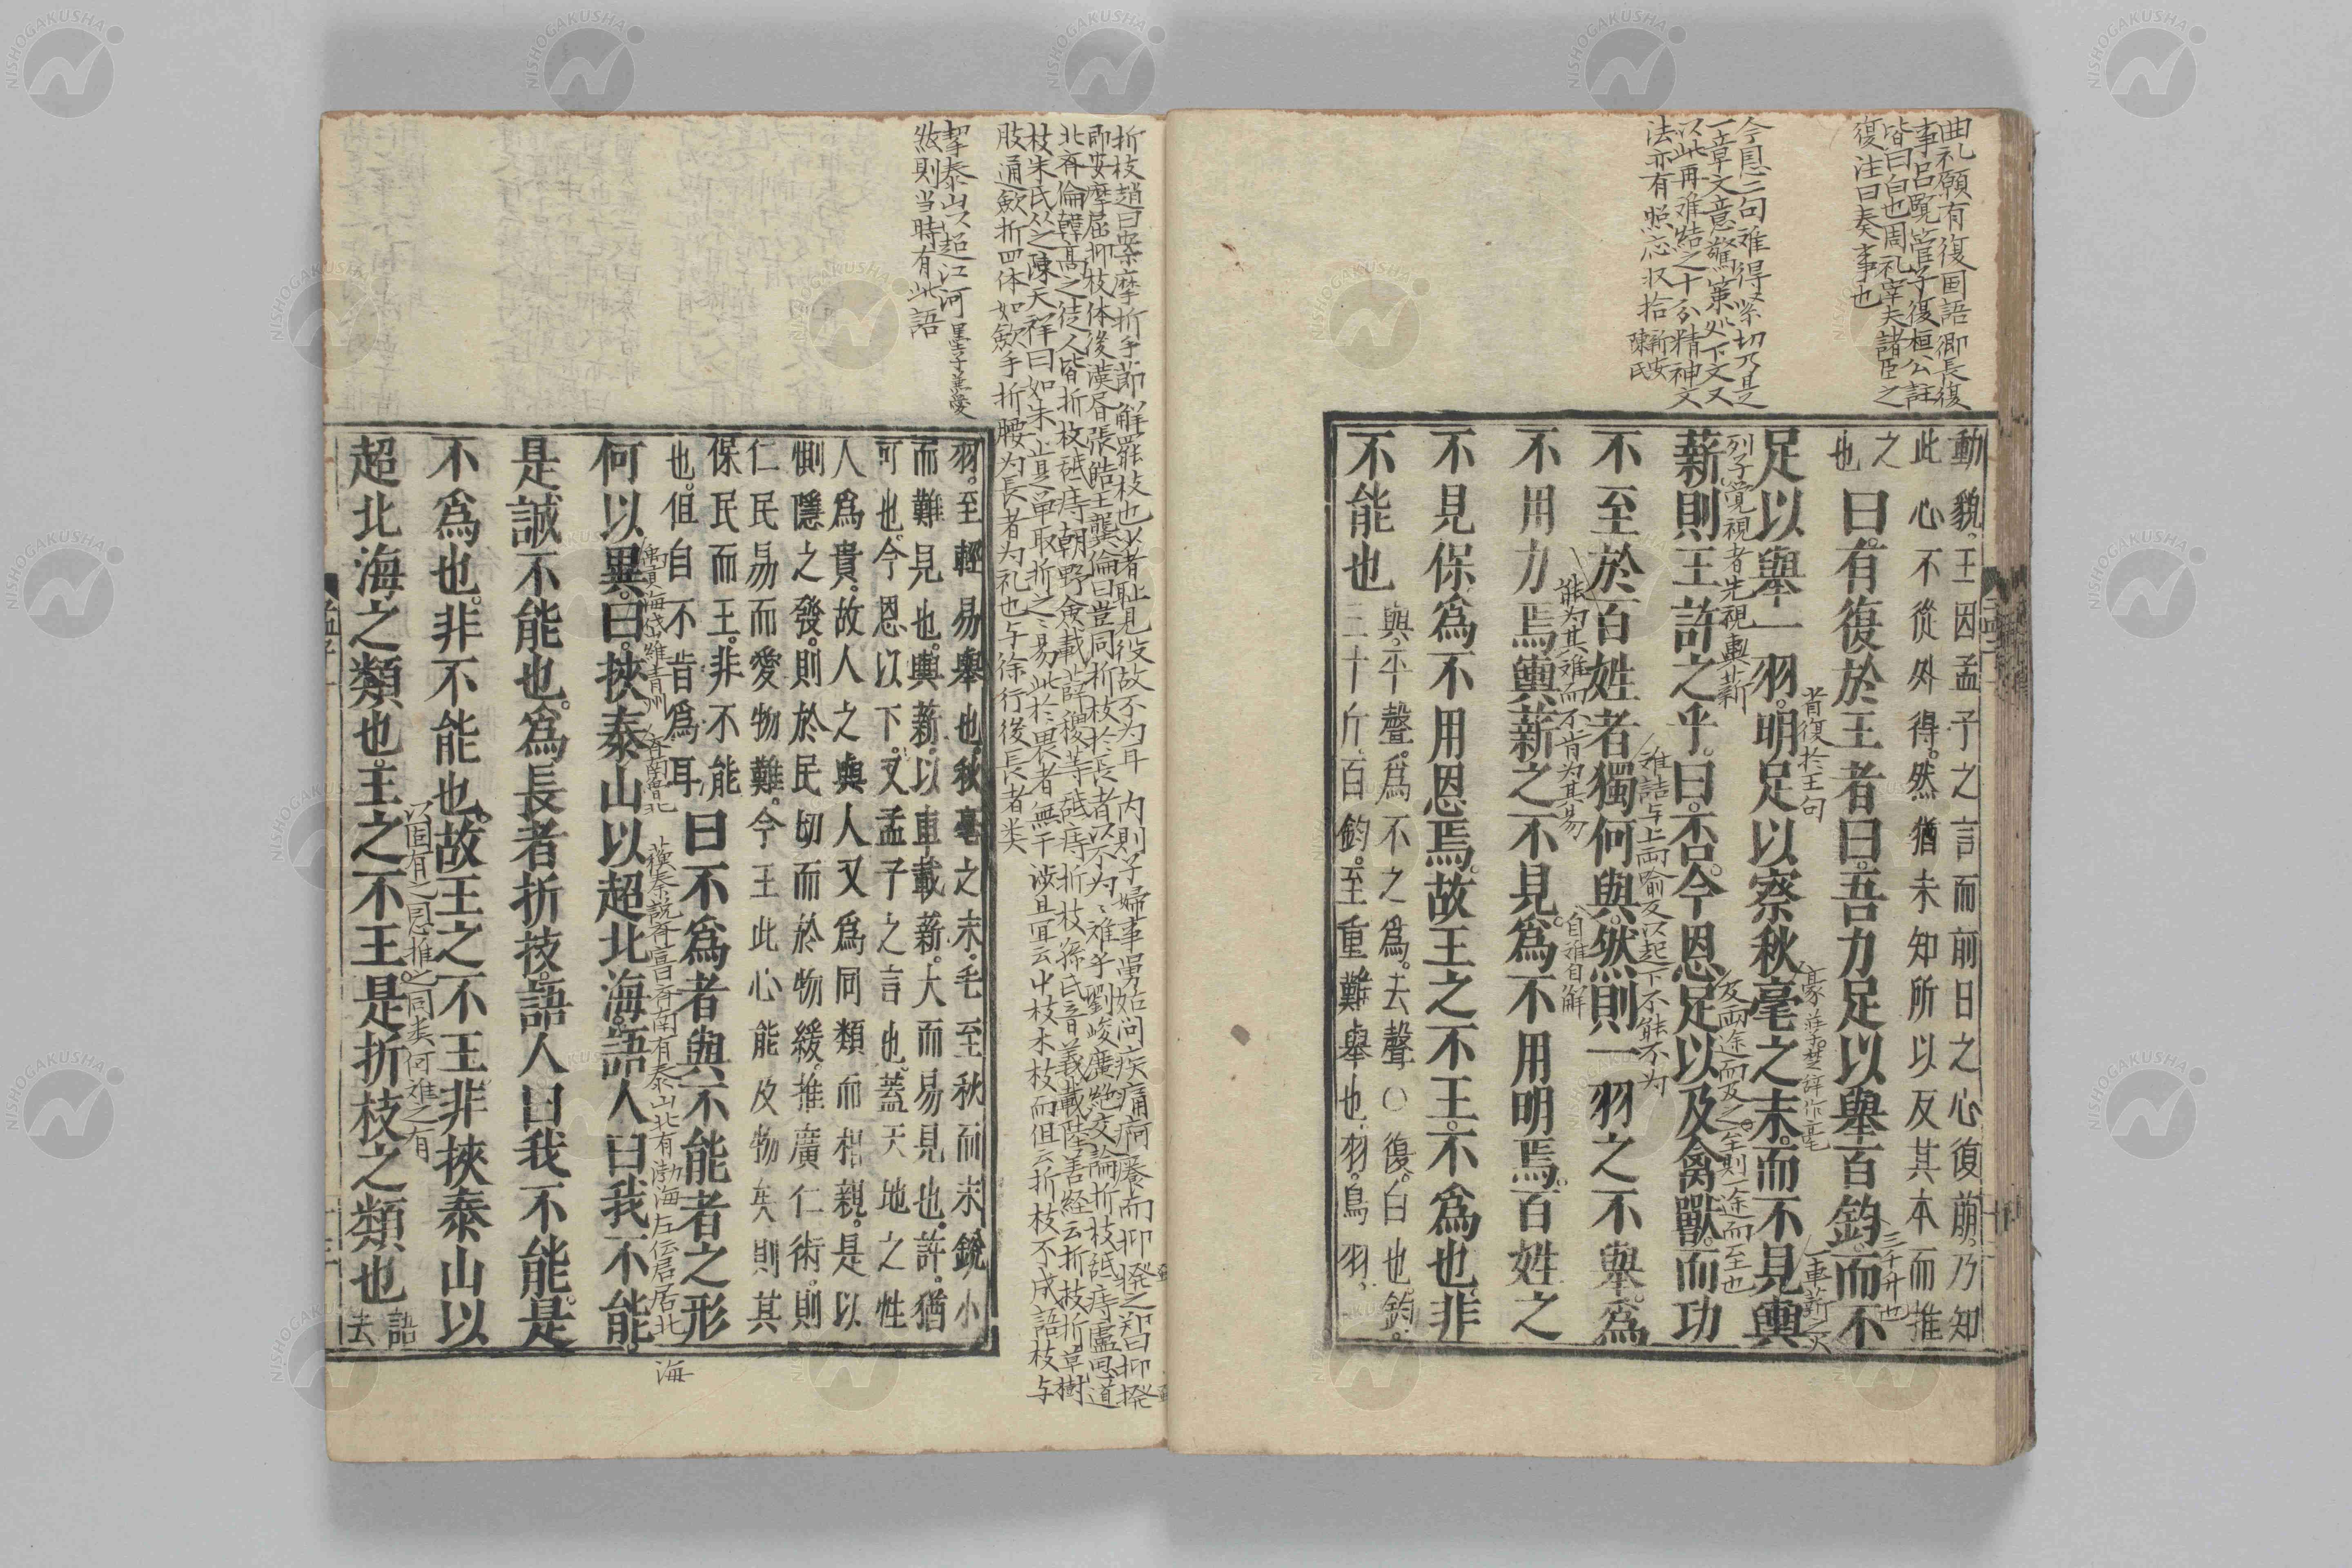 曲礼願有復国語郷長復
事呂覧管子復桓公註
皆曰白也周礼宰夫諸臣之
復注曰奏事也
今恩二句难得緊切乃是
一章文意警策処下文又
以此再难結之十分精神文
法亦有照応収拾新安陳氏
動貌。王因孟子之言而前日之心復萌。乃知
此心不從外得。然猶未知所以反其本而推
之
也
曰。有復於王者曰。吾力足以舉百鈞。而不
三千斤也
足以舉一羽。明足以察秋毫之末。而不見輿
薪則王許之乎。曰。否。今恩足以及禽獸。而功
列子覚視者先視輿薪
不至於百姓者獨何與。然則一羽之不舉。爲
不用力焉。輿薪之不見。爲不用明焉。百姓之
能为其难而不肯为其易
自推自解
不見保。爲不用恩焉。故王之不王。不爲也。非
不能也
輿。平聲。爲不之爲。去聲〇復。白也。鈞。
三十斤。百鈞。至重難舉也。羽。鳥羽。
折枝趙曰案摩折手節解罷枝也少者耻見役故不为耳 内則子婦事舅姑问疾痛疴癢而抑搔之郑曰抑搔
即安摩屈抑枝体後漢
北斉倫韓高之徒人皆折枝舐痔朝野僉載薛稷等舐痔折枝孫氏音義載陸善経云折枝折草樹
枝朱氏从之陳天祥曰如朱止是单取折之之易此於畏者無干渉且宜云中枝木枝而但云折枝不成語枝与
肢通歛折四体如歛手折腰为長者为礼也与徐行後長者类
挈泰山以超江河墨子兼愛
然則当時有此語
羽。至輕易舉也。秋毫之末。毛至秋而末銳。小
而難見也。輿薪。以車載薪。大而易見也。許。猶
可也。今恩以下。又孟子之言也。蓋天地之性
人爲貴。故人之與人又爲同類而相親。是以
惻隱之發。則於民切而於物緩。推廣仁術。則
仁民易而愛物難。今王此心能及物矣則其
保民而王。非不能
也。但自不肯爲耳
曰不爲者與不能者之形
蘇秦説斉宣曰斉南有泰山北有渤海左伝君居北海
何以異。曰。挾泰山以超北海。語人曰我不能。
是誠不能也。爲長者折枝。語人曰我不能。是
不爲也。非不能也。故王之不王非挾泰山以
以固有之恩推之同类何难之有
超北海之類也。王之不王。是折枝之類也
語
去